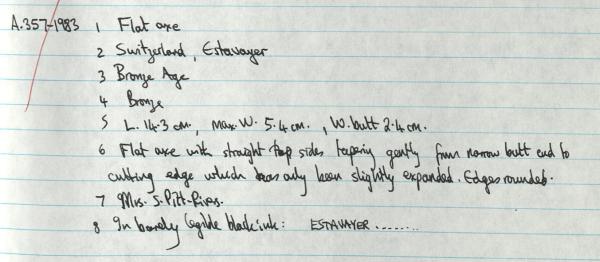 A.357-1983 1 Flat axe
2 Switzerland, Estavayer
3 Bronze Age
4 Bronze
5 L. 14.3 cm, max. W. 5.4 cm., W. butt 2.4 cm.
6 Flat axe with straight sides tapering gently from narrow butt end to
cutting edge which has only been slightly expanded. Edges rounded.
7 Mrs. S. Pitt-Rivers.
8 In barely legible black ink: ESTAVAYER ........